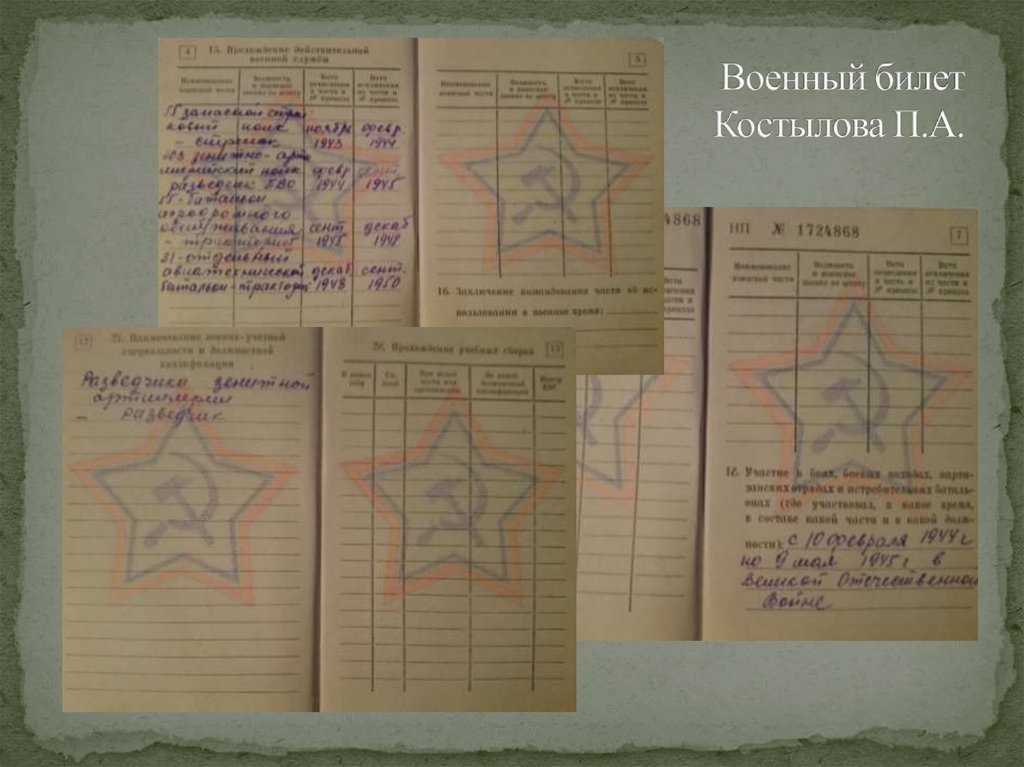 Военный билет
Костылова П.А.
4
15. Прохождение действительной
военной службы
Наименование
воинской части
Должность
и воинское
звание по штату
Дата
зачисления
в часть и
№ приказа
Дата
исключения
из части и
№ приказа
55 запасной стрел
ковый полк ноябрь февр
– стрелок 1943 1944
зенитно-арт
иллерийский полк февр сент
разведчик ПВО 1944 1945
батальон
аэродромного
обслуживания сент декаб
– тракторист 1945 1948
отдельный
авиатехнической декаб. сент.
батальон-тракторист 1948 1950
5
Наименование
воинской части
Должность
и воинское
звание по штату
Дата
зачисления
в часть и
№ приказа
Дата
исключения
из части и
№ приказа
16. Заключение командования части об ис-
пользовании в военное время:
4868
НП № 1724868
7
Наименование
воинской части
Должность
и воинское
звание по штату
Дата
зачисления
в часть и
№ приказа
Дата
исключения
из части и
№ приказа
18. Участие в боях, боевых походах, парти-
занских отрядах и истребительных баталь-
онах (где участвовал, в какое время,
в составе какой части и в какой долж-
ности): с 10 февраля 1944 г
по 9 мая 1945 г в
Великой Отечественной
Войне
12
Наименование военно-учетной
специальности и должностной
квалификации
Разведчика зенитной
артиллерии
– разведчик
Прохождение учебных сборов
13